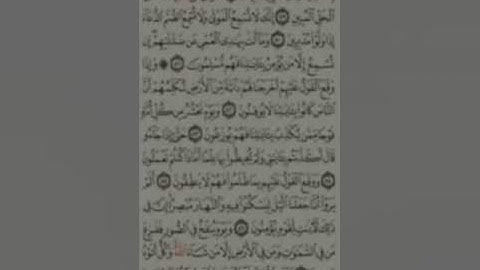 ٱلۡحَقِّ ٱلۡمُبِينِ إِنَّكَ لَا تُسۡمِعُ ٱلۡمَوۡتَىٰ وَلَا تُسۡمِعُ ٱلصُّمَّ ٱلدُّعَآءَ
إِذَا وَلَّوۡاْ مُدۡبِرِينَ وَمَآ أَنتَ بِهَٰدِي ٱلۡعُمۡيِ عَن ضَلَٰلَتِهِمۡۖ إِن
تُسۡمِعُ إِلَّا مَن يُؤۡمِنُ بِـَٔايَٰتِنَا فَهُم مُّسۡلِمُونَ ۞ وَإِذَا
وَقَعَ ٱلۡقَوۡلُ عَلَيۡهِمۡ أَخۡرَجۡنَا لَهُمۡ دَآبَّةٗ مِّنَ ٱلۡأَرۡضِ تُكَلِّمُهُمۡ أَنَّ
ٱلنَّاسَ كَانُواْ بِـَٔايَٰتِنَا لَا يُوقِنُونَ وَيَوۡمَ نَحۡشُرُ مِن كُلِّ أُمَّةٖ
فَوۡجٗا مِّمَّن يُكَذِّبُ بِـَٔايَٰتِنَا فَهُمۡ يُوزَعُونَ حَتَّىٰٓ إِذَا جَآءُو
قَالَ أَكَذَّبۡتُم بِـَٔايَٰتِي وَلَمۡ تُحِيطُواْ بِهَا عِلۡمًا أَمَّاذَا كُنتُمۡ تَعۡمَلُونَ
وَوَقَعَ ٱلۡقَوۡلُ عَلَيۡهِم بِمَا ظَلَمُواْ فَهُمۡ لَا يَنطِقُونَ أَلَمۡ
يَرَوۡاْ أَنَّا جَعَلۡنَا ٱلَّيۡلَ لِيَسۡكُنُواْ فِيهِ وَٱلنَّهَارَ مُبۡصِرًاۚ إِنَّ فِي
ذَٰلِكَ لَأٓيَٰتٖ لِّقَوۡمٖ يُؤۡمِنُونَ وَيَوۡمَ يُنفَخُ فِي ٱلصُّورِ فَفَزِعَ
مَن فِي ٱلسَّمَٰوَٰتِ وَمَن فِي ٱلۡأَرۡضِ إِلَّا مَن شَآءَ ٱللَّهُۚ وَكُلٌّ أَتَوۡهُ